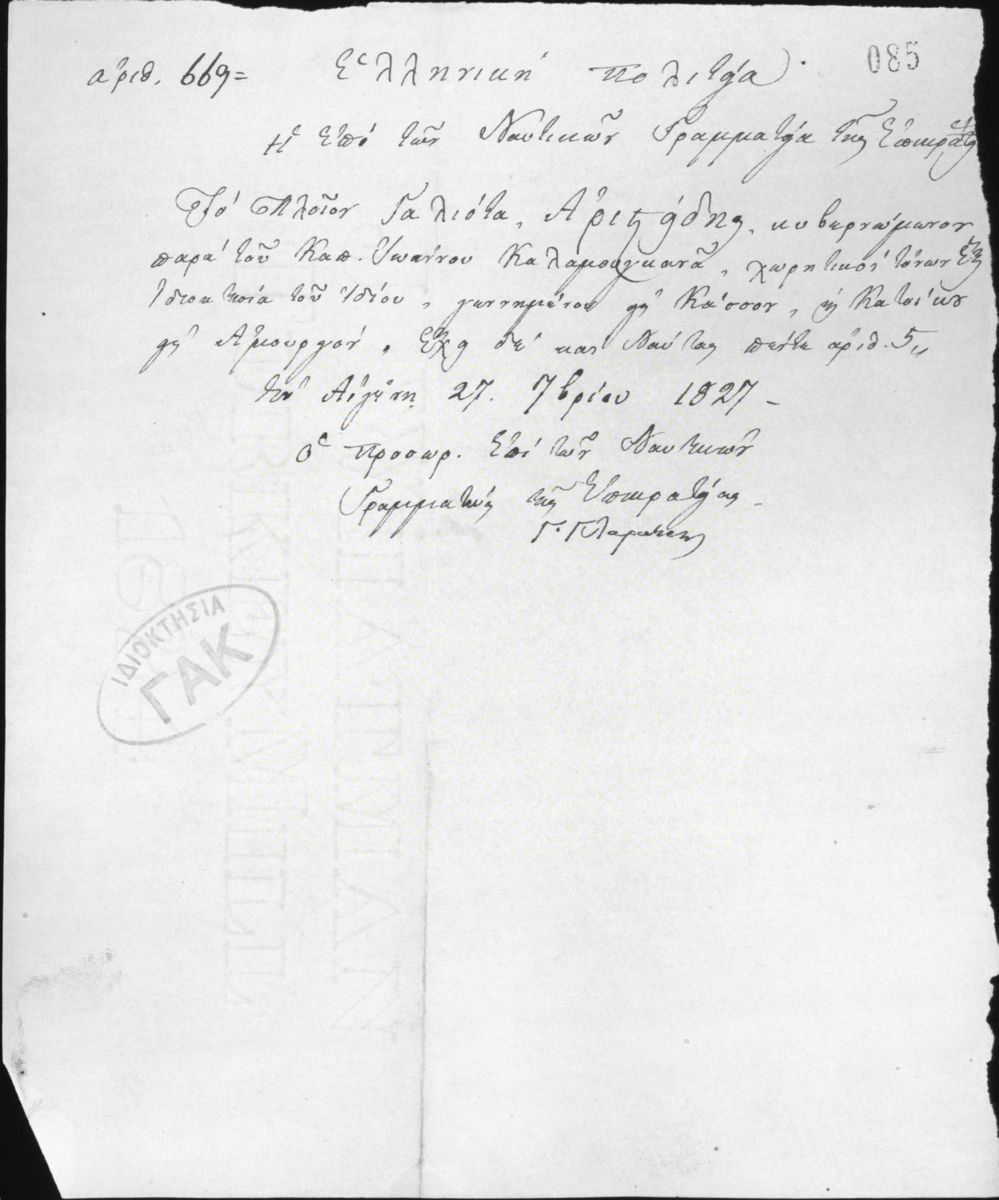 085
ἀριθ. 669= Ἑλληνικὴ πολιτεία.
Ἡ Ἐπὶ τῶν Ναυτικῶν Γραμματεία τῆς Ἐπικρατεί
Τὸ Πλοῖον Γαλιότα, Ἀριστείδης, κυβερνώμενον
παρὰ τοῦ Καπ. Ἰωάννου, χωρητικὸς τόνων
Ἰδιοκτησία τοῦ Ἰδίου, γεννημένου εἰς Κάσσον, καὶ Κατοίκου
εἰς Ἀμουργόν, ἔχει δὲ καὶ Ναύτας πέντε ἀριθ. 5,,
Ἐν Αἰγίνῃ 27. 7βρίου 1827 -
Ὁ προσωρ. Ἐπὶ τῶν Ναυτικῶν
Γραμματεὺς τῆς Ἐπικρατείας -
Γ. Γλαράκης
ΙΔΙΟΚΤΗΣΙΑ
ΓΑΚ